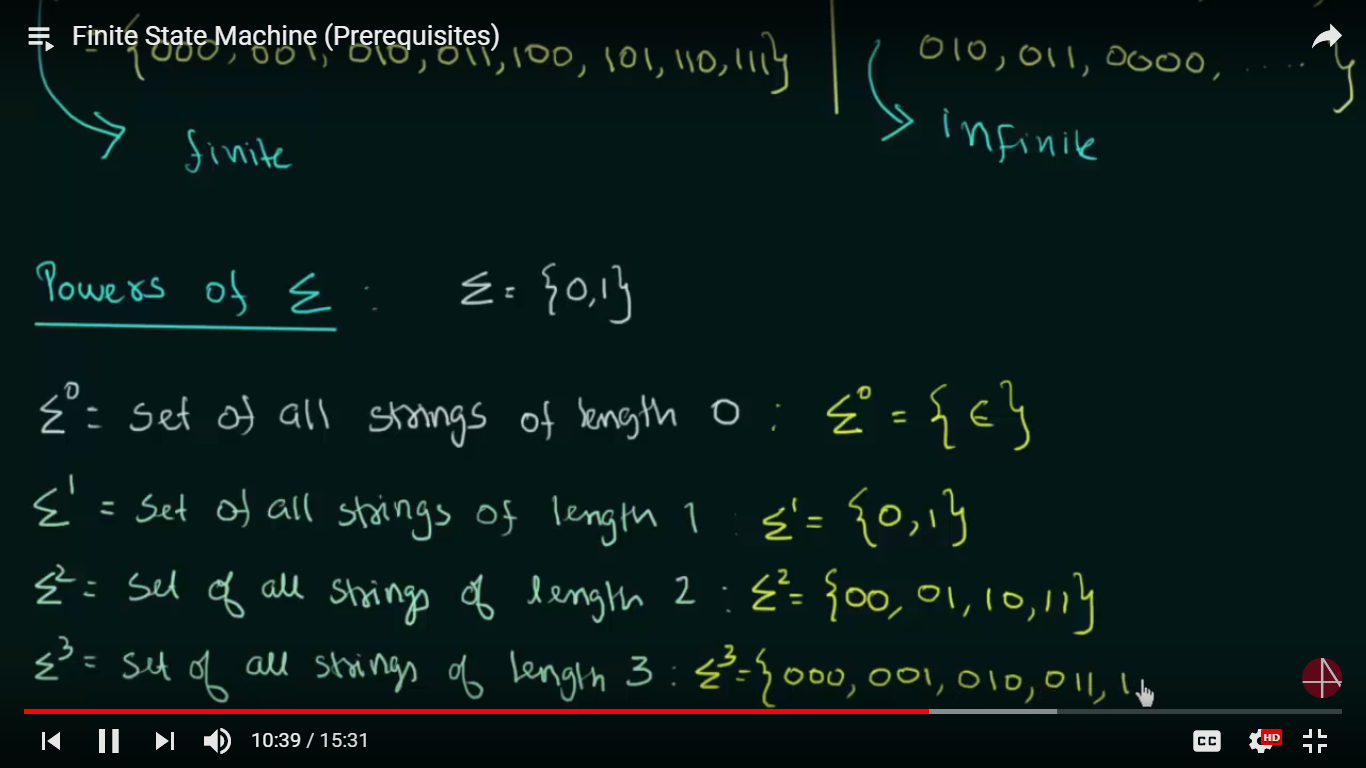 Finite State Machine (Prerequisites)
= {000, 001, 010, 011, 100, 101, 110, 111}
010, 011, 0000, ..... }
finite
infinite
Powers of Σ : Σ = {0,1}
Σ⁰ = set of all strings of length 0 : Σ⁰ = {ϵ}
Σ¹ = set of all strings of length 1 : Σ¹ = {0,1}
Σ² = set of all strings of length 2 : Σ² = {00, 01, 10, 11}
Σ³ = set of all strings of length 3 : Σ³ = {000, 001, 010, 011, 1
10:39 / 15:31
CC
HD